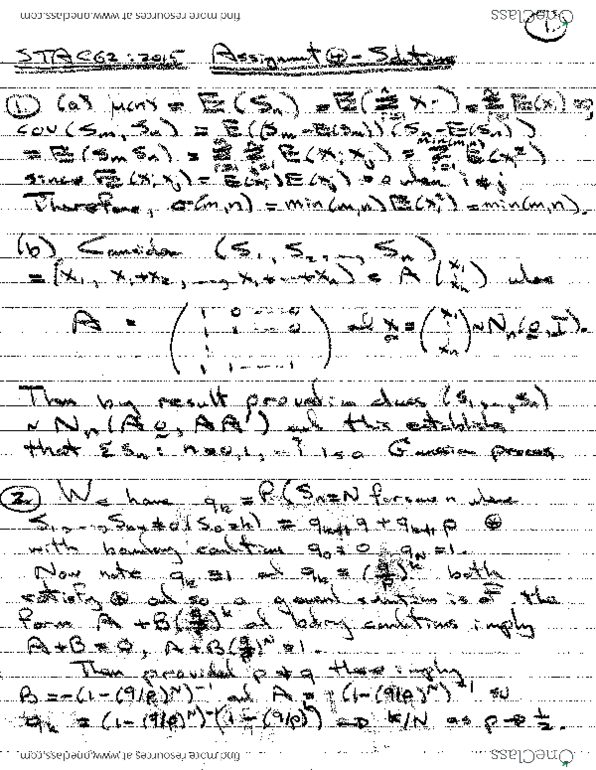 find more resources at www.oneclass.com
OneClass
1.
STAC62: 2015 Assignment 4 - Solutions
① (a) μ(n) = E(S_n) = E(Σ X_i) = Σ E(X_i) = 0,
cov(S_m, S_n) = E((S_m - E(S_m))(S_n - E(S_n)))
= E(S_m S_n) = Σ Σ E(X_i X_j) = Σ E(X_i²)
since E(X_i X_j) = E(X_i)E(X_j) = 0 when i ≠ j
Therefore, σ(m,n) = min(m,n) E(X_i²) = min(m,n).
(b) Consider (S_1, S_2, ..., S_n)
= (X_1, X_1+X_2, ..., X_1+...+X_n) = A (x_1 ⋮ x_n) where
A = ( 1 0 ... 0 / 1 1 ... 0 / 1 1 ... 1 ) and x = (x_1 ⋮ x_n) ~ N_n(0, I).
Then by result proved in class (S_1, ..., S_n)
~ N_n(A0, AA') and this establishes
that {S_n : n = 0, 1, ...} is a Gaussian process
② We have q_k = P(S_n = N for some n where
S_1, ..., S_n ≠ 0 | S_0 = k) = q_{k-1} q + q_{k+1} p ⊛
with boundary conditions q_0 = 0 q_N = 1.
Now note q_k = 1 and q_k = (q/p)^k both
satisfy ⊛ and so a general solution is of the
form A + B(q/p)^k and bdry conditions imply
A + B = 0, A + B(q/p)^N = 1.
Then provided p ≠ q these imply
B = -(1 - (q/p)^N)^-1 and A = (1 - (q/p)^N)^-1 so
q_k = (1 - (q/p)^N)^-1 (1 - (q/p)^k) → k/N as p → ½.
find more resources at www.oneclass.com
OneClass